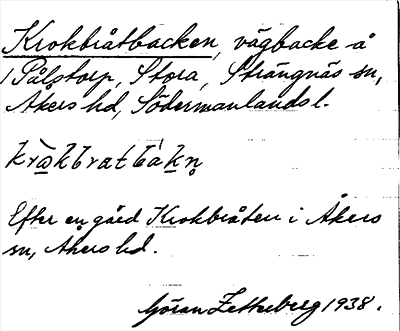 Krokbråtbacken, vägbacke å
Pålstorp, Stora, Strängnäs sn,
Åkers hd, Södermanlands l.
Efter en gård Krokbråten i Åkers
sn, Åkers hd.
Göran Zetterberg 1938.